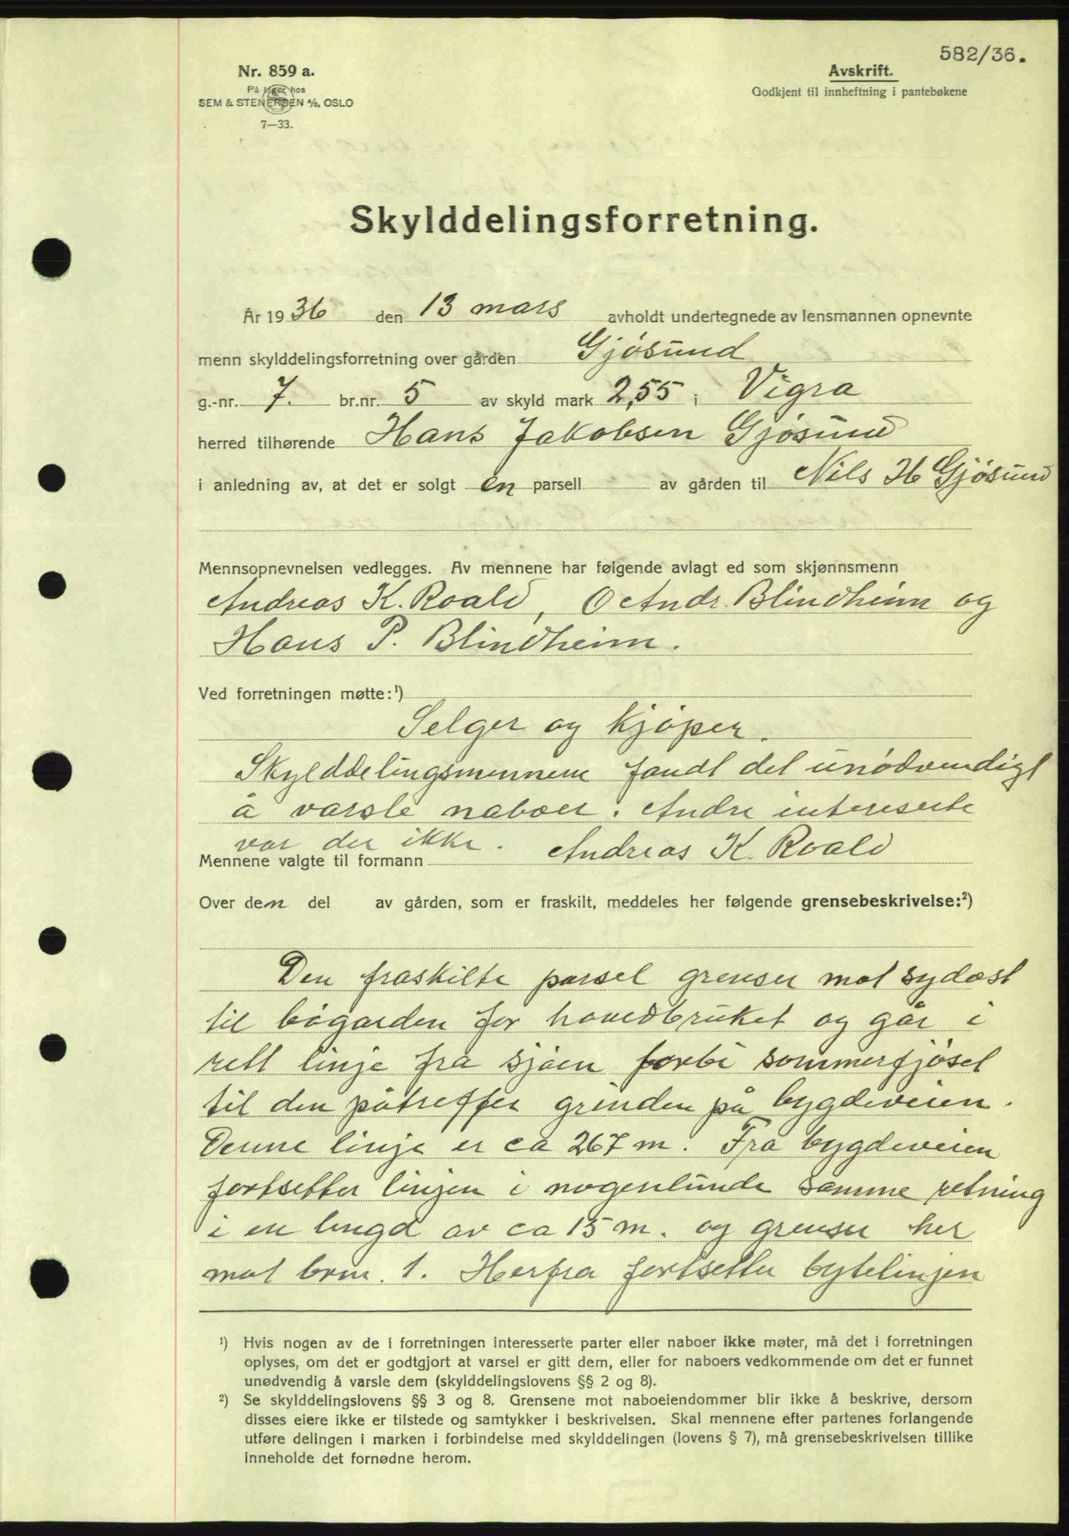 582/36.
Nr. 859 a.
På lager hos
SEM & STENERSEN A/S, OSLO
7—33.
Avskrift.
Godkjent til innheftning i pantebøkene
Skylddelingsforretning.
År 1936 den 13 mars avholdt undertegnede av lensmannen opnevnte
menn skylddelingsforretning over gården Gjøsund
g.-nr. 7. br.nr. 5 av skyld mark 2,55 i Vigra
herred tilhørende Hans Jakobsen Gjøsund
i anledning av, at det er solgt en parsell av gården til Nils H Gjøsund
Mennsopnevnelsen vedlegges. Av mennene har følgende avlagt ed som skjønnsmenn
Andreas K. Roald, O Andr. Blindheim og
Hans P. Blindheim.
Ved forretningen møtte:¹)
Selger og kjøper.
Skylddelingsmennene fandt det unødvendigt
å varsle naboer. Andre intereserte
var der ikke.
Mennene valgte til formann Andreas K. Roald
Over den del av gården, som er fraskilt, meddeles her følgende grensebeskrivelse:²)
Den fraskilte parsel grenser mot sydøst
til bøgarden for hovedbruket og går i
rett linje fra sjøen forbi sommerfjøset
til den påtreffer grinden på bygdeveien.
Denne linje er ca 267 m. Fra bygdeveien
fortsetter linjen i nogenlunde samme retning
i en lengd av ca 15 m. og grenser her
mot brnr. 1. Herfra fortsetter bytelinjen
¹) Hvis nogen av de i forretningen interesserte parter eller naboer ikke møter, må det i forretningen
oplyses, om det er godtgjort at varsel er gitt dem, eller for naboers vedkommende om det er funnet
unødvendig å varsle dem (skylddelingslovens §§ 2 og 8).
²) Se skylddelingslovens §§ 3 og 8. Grensene mot naboeiendommer blir ikke å beskrive, dersom
disses eiere ikke er tilstede og samtykker i beskrivelsen. Skal mennene efter partenes forlangende
utføre delingen i marken i forbindelse med skylddelingen (lovens § 7), må grensebeskrivelsen tillike
inneholde det fornødne herom.